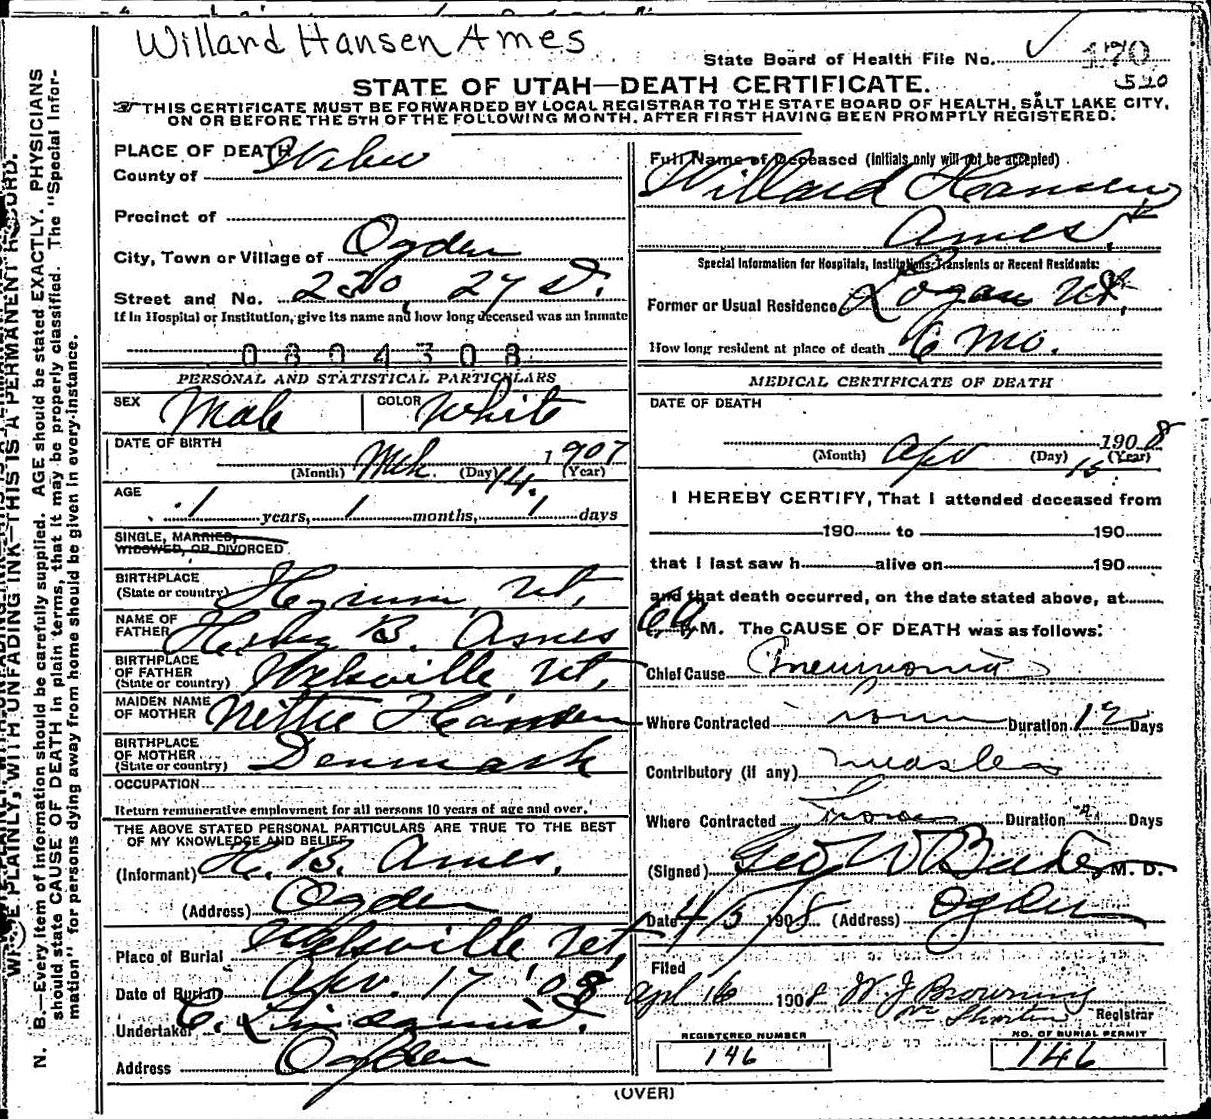 Willard Hansen Ames
State Board of Health File No. 170
520
STATE OF UTAH—DEATH CERTIFICATE.
THIS CERTIFICATE MUST BE FORWARDED BY LOCAL REGISTRAR TO THE STATE BOARD OF HEALTH, SALT LAKE CITY,
ON OR BEFORE THE 5TH OF THE FOLLOWING MONTH, AFTER FIRST HAVING BEEN PROMPTLY REGISTERED.
PLACE OF DEATH
County of Weber
Precinct of
City, Town or Village of Ogden
Street and No. 230, 27 St.
If in Hospital or Institution, give its name and how long deceased was an inmate
0804308
PERSONAL AND STATISTICAL PARTICULARS
SEX Male COLOR White
DATE OF BIRTH
(Month) Mch. (Day) 14. 1907 (Year)
AGE
1 years, 1 months, 1 days
SINGLE, MARRIED,
WIDOWED, OR DIVORCED
BIRTHPLACE
(State or country) Hyrum, Ut,
NAME OF
FATHER B. Ames
BIRTHPLACE
OF FATHER
(State or country) Welsville Ut,
MAIDEN NAME
OF MOTHER Nettie Hansen
BIRTHPLACE
OF MOTHER
(State or country) Denmark
OCCUPATION
Return remunerative employment for all persons 10 years of age and over.
THE ABOVE STATED PERSONAL PARTICULARS ARE TRUE TO THE BEST
OF MY KNOWLEDGE AND BELIEF
(Informant) H. B. Ames,
(Address) Ogden
Place of Burial Welsville Ut
Date of Burial Apr. 17 '08
Undertaker
Address Ogden
Full Name of Deceased (Initials only will not be accepted)
Willard Hansen
Ames
Special Information for Hospitals, Institutions, Transients or Recent Residents:
Former or Usual Residence Logan Ut,
How long resident at place of death 6 mo.
MEDICAL CERTIFICATE OF DEATH
DATE OF DEATH
(Month) Apr (Day) 15 1908 (Year)
I HEREBY CERTIFY, That I attended deceased from
190 to 190
that I last saw h alive on 190
and that death occurred, on the date stated above, at
M. The CAUSE OF DEATH was as follows:
Chief Cause Pneumonia
Where Contracted Duration 12 Days
Contributory (if any) Measles
Where Contracted Duration Days
(Signed) Geo W Baker, M. D.
Date 1908 (Address) Ogden
Filed
Apl 16 1908 W J Browning
Registrar
REGISTERED NUMBER
146
NO. OF BURIAL PERMIT
146
(OVER)
WRITE PLAINLY, WITH UNFADING INK—THIS IS A PERMANENT RECORD.
N. B.—Every item of information should be carefully supplied. AGE should be stated EXACTLY. PHYSICIANS
should state CAUSE OF DEATH in plain terms, that it may be properly classified. The "Special Infor-
mation" for persons dying away from home should be given in every instance.